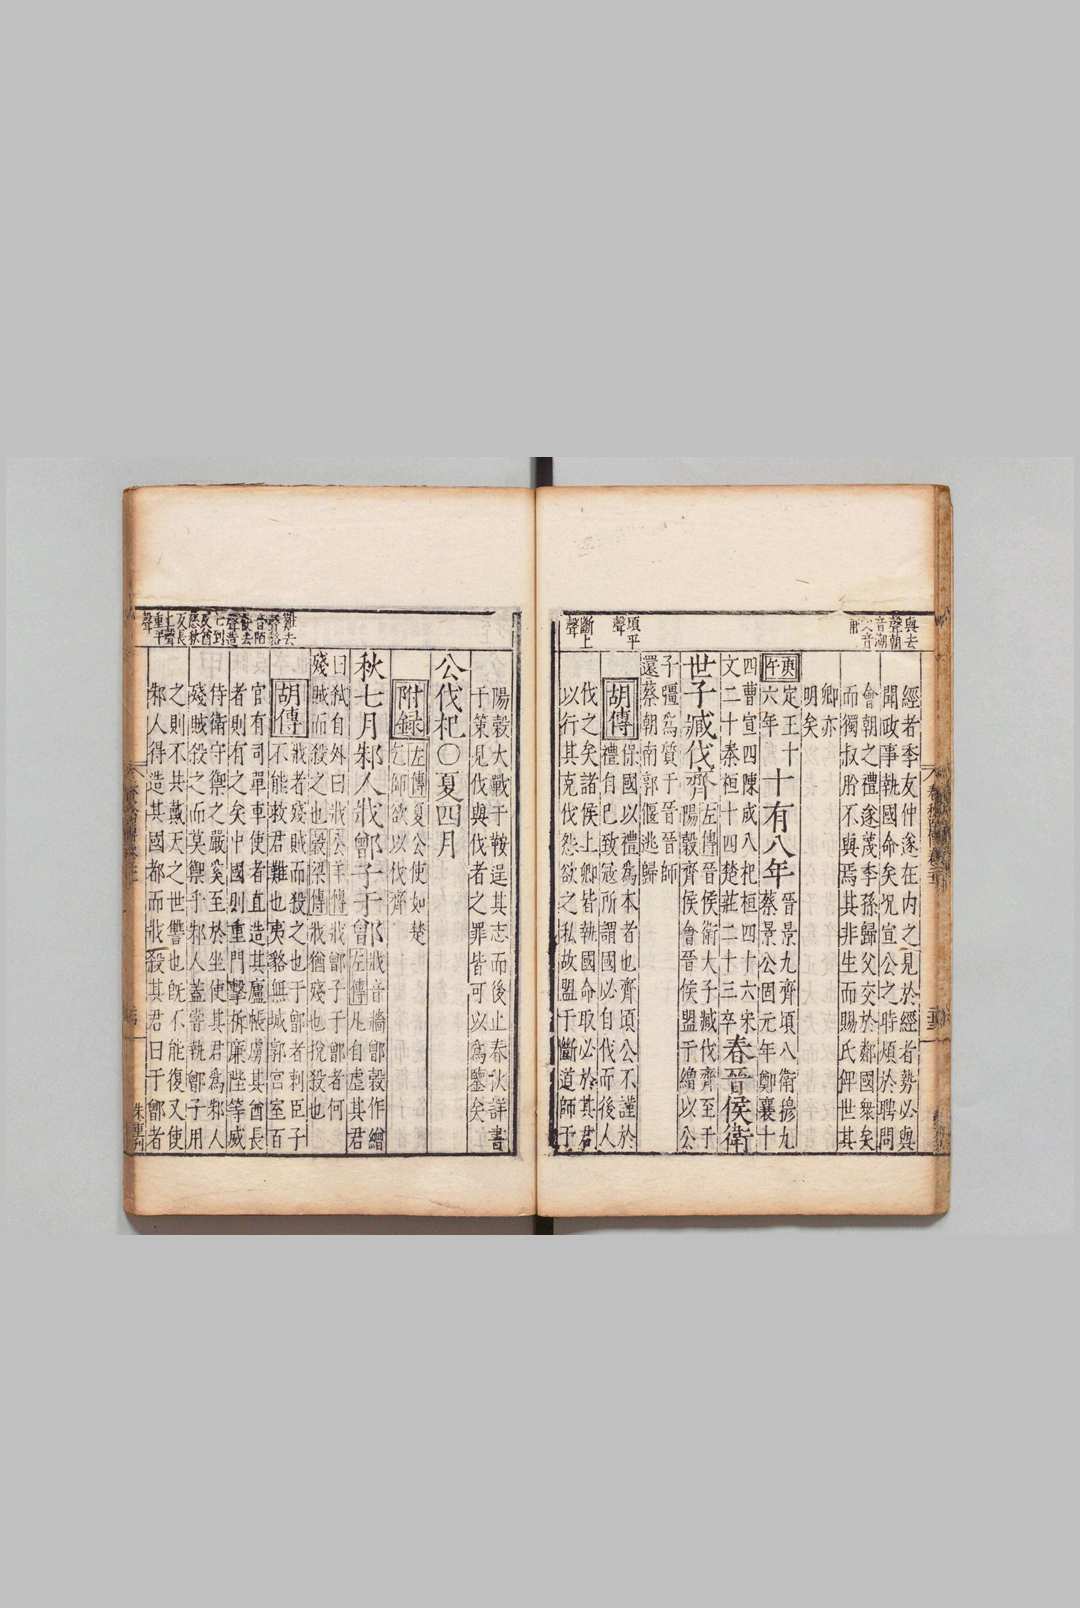 與去
聲朝
音潮
經者季友仲遂在内之見於經者勢必與
聞政事執國命矣况宣公之時煩於聘問
會朝之禮遂蔑季孫歸父交於鄰國衆矣
而獨叔肸不與焉其非生而賜氏俾世其
卿亦
明矣
庚午
定王十
六年
十有八年
晉景九齊頃八衛
九
蔡景公固元年鄭襄十
四曹宣四陳成八杞桓四十六宋
文二十秦桓十四楚莊二十三卒
春晉侯衛
世子臧伐齊
左傳晉侯衛大子臧伐齊至于
陽穀齊侯會晉侯盟于繒以公
子彊爲質于晉晉師
還蔡朝南郭偃逃歸
頃平
聲
胡傳
保國以禮爲本者也齊頃公不謹於
禮自已致寇所謂國必自伐而後人
伐之矣諸侯上卿皆執國命取必於其君
以行其克伐怨欲之私故盟于斷道師于
斷上
聲
陽穀大戰于鞍逞其志而後止春秋詳書
于策見伐與伐者之罪皆可以爲鑒矣
公伐杞〇夏四月
附録
左傳夏公使如楚
乞師欲以伐齊
秋七月邾人戕鄫子于鄫
戕音牆鄫穀作繒
左傳凡自虐其君
曰弑自外曰戕公羊傳戕鄫子于鄫者何
殘賊而殺之也穀梁傳戕猶殘也挩殺也
胡傳
戕者殘賊而殺之也于鄫者刺臣子
不能救君難也夷貉無城郭宮室百
官有司單車使者直造其廬帳虜其酋長
者則有之矣中國則重門擊柝廉陛等威
侍衛守禦之嚴奚至於坐使其君爲邾人
殘賊殺之而莫禦乎邾人蓋嘗執鄫子用
之則不共戴天之世讐也既不能復又使
邾人得造其國都而戕殺其君曰于鄫者
難去
聲貉
音陌
使去
聲造
七到
反酋
慈秋
反長
上聲
重平
聲